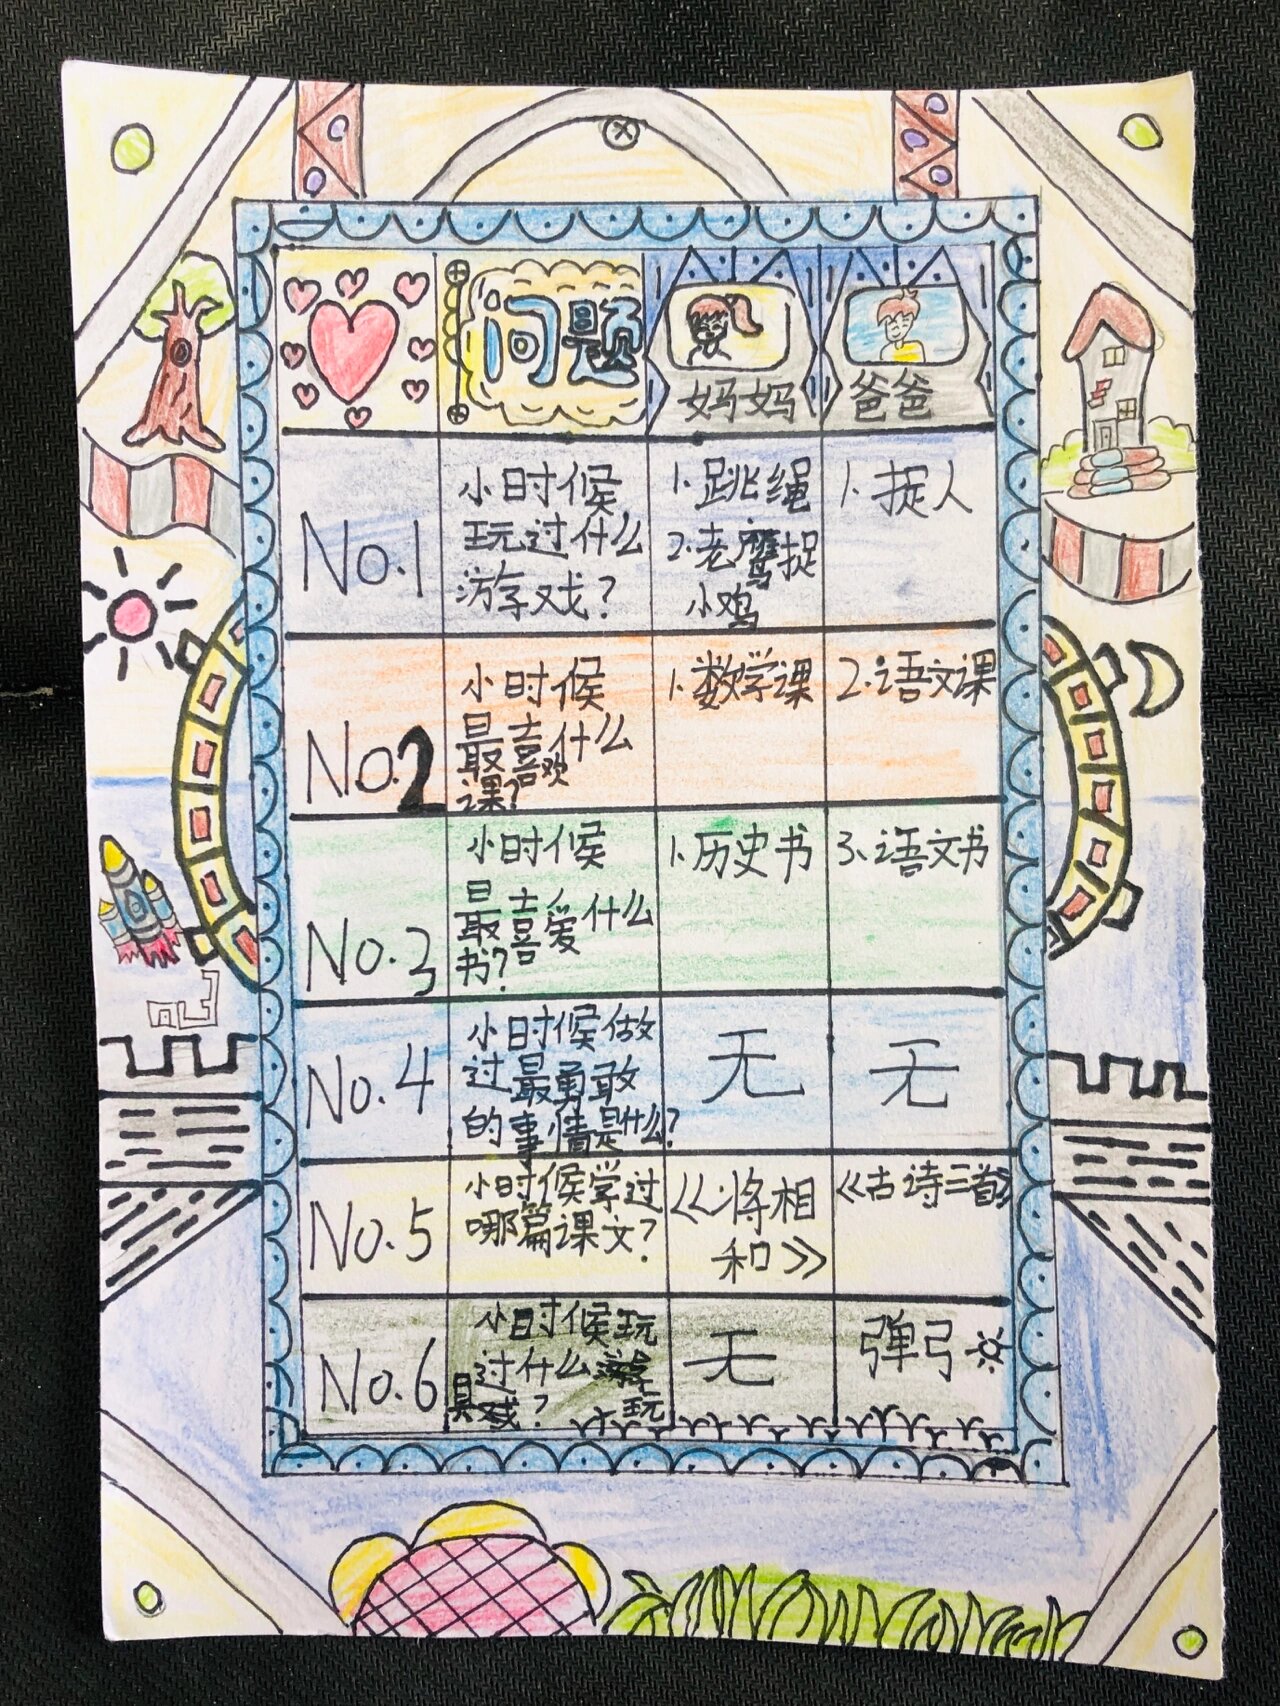 问题
妈妈
爸爸
No.1
小时候
玩过什么
游戏?
1.跳绳
2.老鹰捉
小鸡
1.捉人
No.2
小时候
最喜欢什么
课?
1.数学课
2.语文课
No.3
小时候
最喜爱什么
书?
1.历史书
3.语文书
No.4
小时候做
过最勇敢
的事情是什么?
无
无
No.5
小时候学过
哪篇课文?
《将相
和》
《古诗三首》
No.6
小时候玩
过什么
玩
具?
无
弹弓